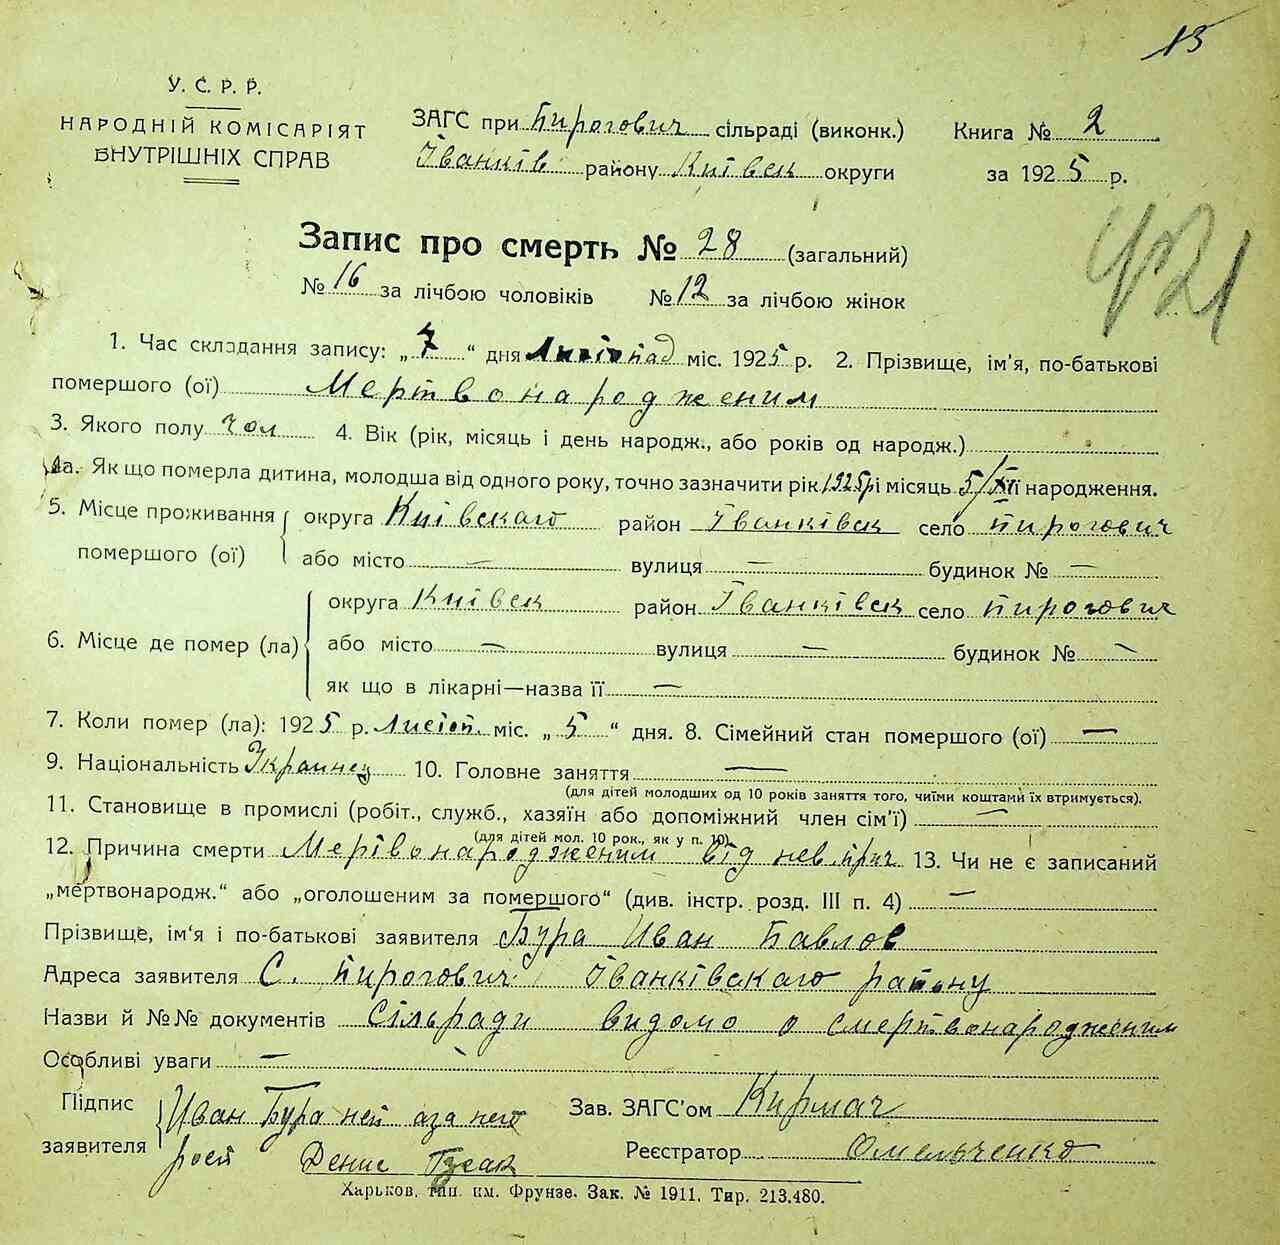 13
У. С. Р. Р.
НАРОДНІЙ КОМІСАРІЯТ
ВНУТРІШНІХ СПРАВ
ЗАГС при Пирогович сільраді (виконк.)
Іванків району Київск округи
Книга № 2
за 1925 р.
Запис про смерть № 28 (загальний)
№ 16 за лічбою чоловіків № 12 за лічбою жінок
1. Час складання запису: „7“ дня Листопад міс. 1925 р. 2. Прізвище, ім'я, по-батькові
помершого (ої) Мертвонародженим
3. Якого полу чол 4. Вік (рік, місяць і день народж., або років од народж.)
4а. Як що померла дитина, молодша від одного року, точно зазначити рік 1925 р і місяць 5/XI її народження.
5. Місце проживання помершого (ої) округа Київскаго район Іванківск село Пирогович
або місто — вулиця — будинок № —
6. Місце де помер (ла) округа Київск район Іванківск село Пирогович
або місто — вулиця — будинок № —
як що в лікарні—назва її —
7. Коли помер (ла): 1925 р. Листоп. міс. „5“ дня. 8. Сімейний стан помершого (ої) —
9. Національність Украинец 10. Головне заняття —
(для дітей молодших од 10 років заняття того, чиїми коштами їх втримується).
11. Становище в промислі (робіт., служб., хазяїн або допоміжний член сім'ї) —
(для дітей мол. 10 рок., як у п. 10)
12. Причина смерти Мертвонародженим від нев. прич 13. Чи не є записаний
„мертвонародж.“ або „оголошеним за помершого“ (див. інстр. розд. III п. 4) —
Прізвище, ім'я і по-батькові заявителя Бура Иван Павлов
Адреса заявителя С. Пирогович Іванківскаго району
Назви й №№ документів Сільради видомо о смертвонародженим
Особливі уваги —
Підпис заявителя Иван Бура
Денис
Зав. ЗАГС'ом Кирмач
Реєстратор Омельченко
Харьков, тип. им. Фрунзе. Зак. № 1911, Тир. 213.480.